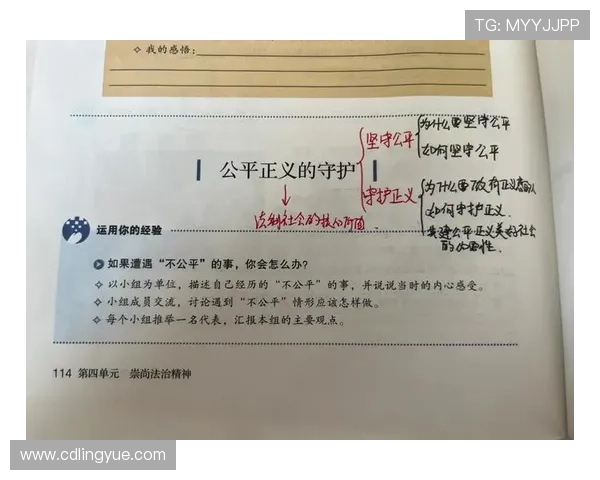 TG: MYYJJPP
✧ 我的感悟：
坚守公平
为什么要坚守公平
如何坚守公平
公平正义的守护
守护正义
如何守护正义
共建公平正义美好社会
的必要性
法制社会的核心价值
运用你的经验
如果遭遇“不公平”的事，你会怎么办？
✧ 以小组为单位，描述自己经历的“不公平”的事，并说说当时的内心感受。
✧ 小组成员交流，讨论遇到“不公平”情形应该怎样做。
✧ 每个小组推举一名代表，汇报本组的主要观点。
114 第四单元 崇尚法治精神
www.cdlingyue.com